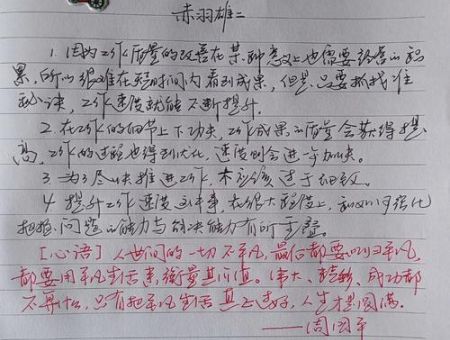 赤羽雄二
1. 因为工作质量的改善在某种意义上也需要经营的积
累,所以很难在短时间内看到成果,但是只要抓找准
秘诀,工作速度就能不断提升.
2. 在工作的细节上下功夫,工作成果的质量会获得提
高,工作的过程也得到优化,速度则会进一步加快。
3. 为了尽快推进工作,不应该过于细致。
4. 提升工作速度这件事,在很大程度上,和以强化
把握问题的能力与解决能力有所重叠。
[心语] 人世间的一切不平凡,最后都要回归平凡,
都要用平凡生活来衡量其价值。伟大、精彩、成功都
不算什么,只有把平凡生活真正过好,人生才是圆满。
——周国平